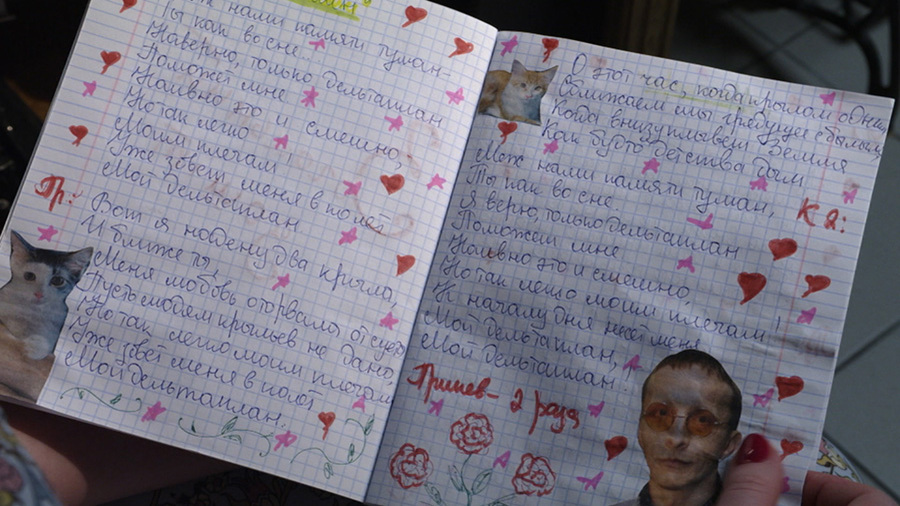 нами памяти туман-
Ты как во сне...
Наверно, только дельтаплан
Поможет мне
Наивно это и смешно,
Но так легко
Моим плечам!
Уже зовёт меня в полёт
Мой дельтаплан
Пр:
Вот я надену два крыла,
И ближе ты,
Меня любовь оторвала от суеты
Пусть людям крыльев не дано,
Но так легко моим плечам
Уже зовёт меня в полёт
Мой дельтаплан.
О этот час, когда крылом одним
Сближаем мы грядущее с былым,
Когда внизу плывёт Земля
Как будто детства дым
Меж нами памяти туман,
Ты как во сне
К 2я:
Я верю, только дельтаплан
Поможет мне
Наивно это и смешно,
Но так легко моим плечам!
К началу дня несёт меня
Мой дельтаплан,
Мой дельтаплан!
Припев - 2 раза